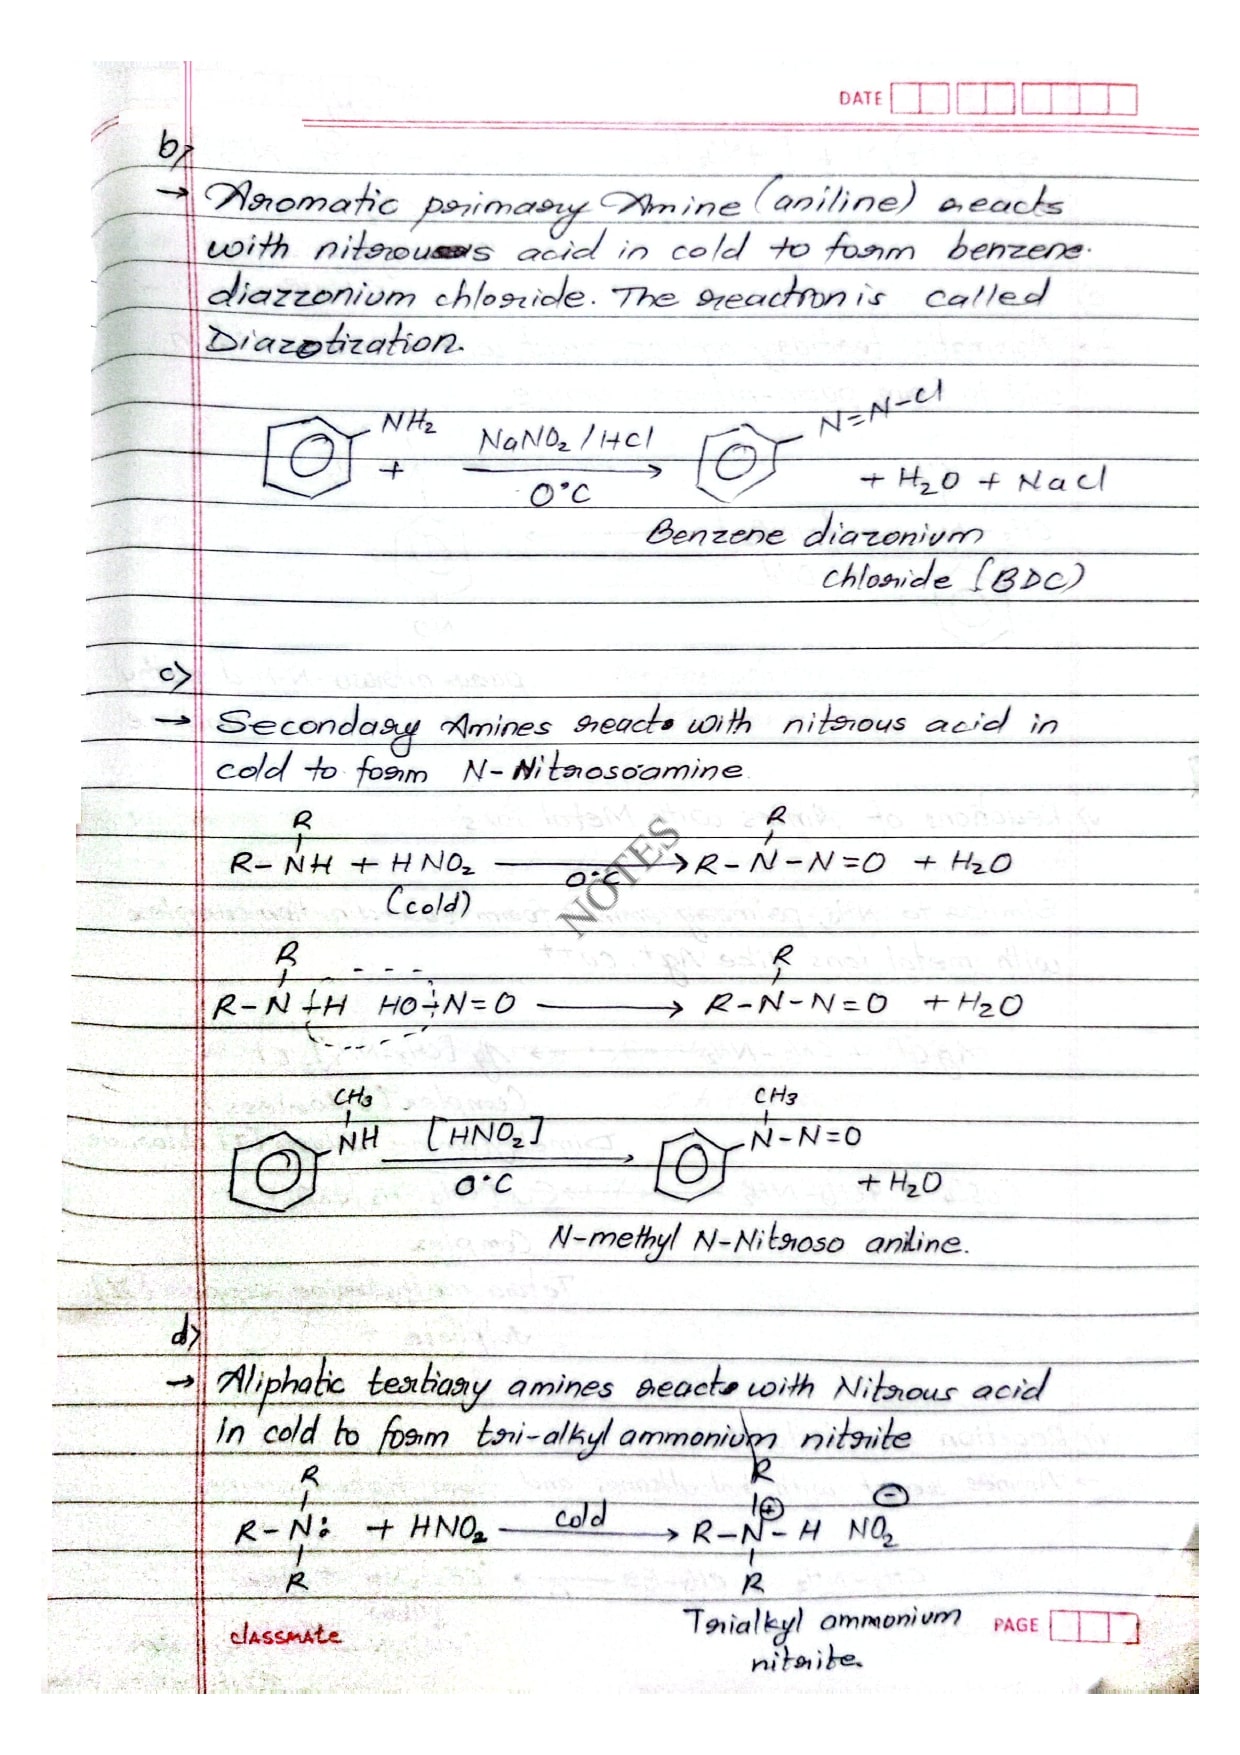 DATE
b)
→ Aromatic primary Amine (aniline) reacts
with nitrous acid in cold to form benzene
diazzonium chloride. The reaction is called
Diazotization.
NH₂ + NaNO₂ / HCl 0°C N=N-Cl + H₂O + NaCl
Benzene diazonium
chloride (BDC)
c)
→ Secondary Amines reacts with nitrous acid in
cold to form N-Nitrosoamine.
R R
R-NH + HNO₂ 0°C → R-N-N=O + H₂O
(cold)
NOTES
R R
R-N-H HO-N=O → R-N-N=O + H₂O
CH₃ CH₃
NH [HNO₂] 0°C → N-N=O
+ H₂O
N-methyl N-Nitroso aniline.
d)
→ Aliphatic tertiary amines reacts with Nitrous acid
in cold to form tri-alkyl ammonium nitrite
R R
R-N: + HNO₂ cold → R-N⊕-H NO₂⊖
R R
Trialkyl ammonium
nitrite.
classmate PAGE